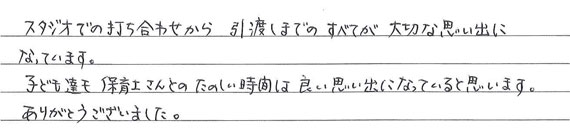 スタジオでの打ち合わせから 引渡しまでの すべてが 大切な思い出に
なっています。
子ども達も 保育士さんとの たのしい時間は 良い思い出になっていると思います。
ありがとうございました。